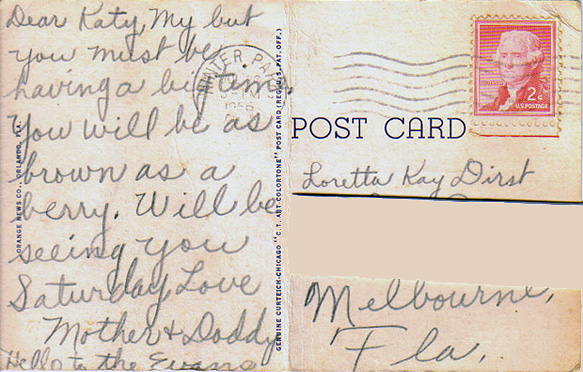 Dear Katy, My but
you must be
having a big time.
You will be as
brown as a
berry. Will be
seeing you
Saturday Love
Mother & Daddy
Hello to the Evans
ORANGE NEWS CO., ORLANDO, FLA.
GENUINE CURTEICH-CHICAGO "C.T. ART-COLORTONE" POST CARD (REG. U.S. PAT. OFF.)
WINTER PARK
2¢
U.S. POSTAGE
POST CARD
Loretta Kay Dirst
Melbourne,
Fla.